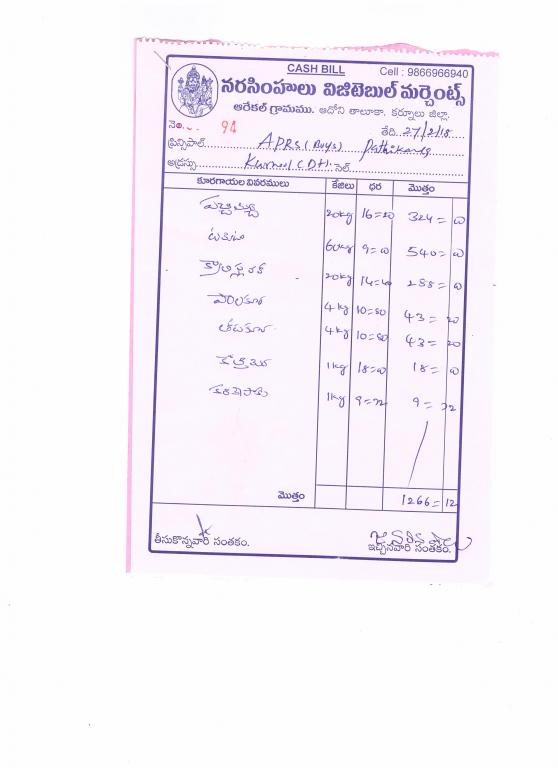 CASH BILL Cell : 9866966940
నరసింహులు విజిటెబుల్ మర్చెంట్స్
ఆరేకల్ గ్రామము. ఆదోని తాలూకా. కర్నూలు జిల్లా.
నెం. 94 తేది. 27/2/18
ప్రిన్సిపాల్ APRS (Boys)
అడ్రస్సు Kurnool (Dt). సెల్
కూరగాయల వివరములు కేజిలు ధర మొత్తం
20kg 16=20 324=0
టమోటా 60kg 9=0 540=0
20kg 14=40 288=0
పాలకూర 4kg 10=80 43=20
తోటకూర 4kg 10=80 43=20
1kg 18=0 18=0
కరివేపాకు 1kg 9=72 9=72
మొత్తం 1266=12
తీసుకొన్నవారి సంతకం. ఇచ్చినవారి సంతకం.